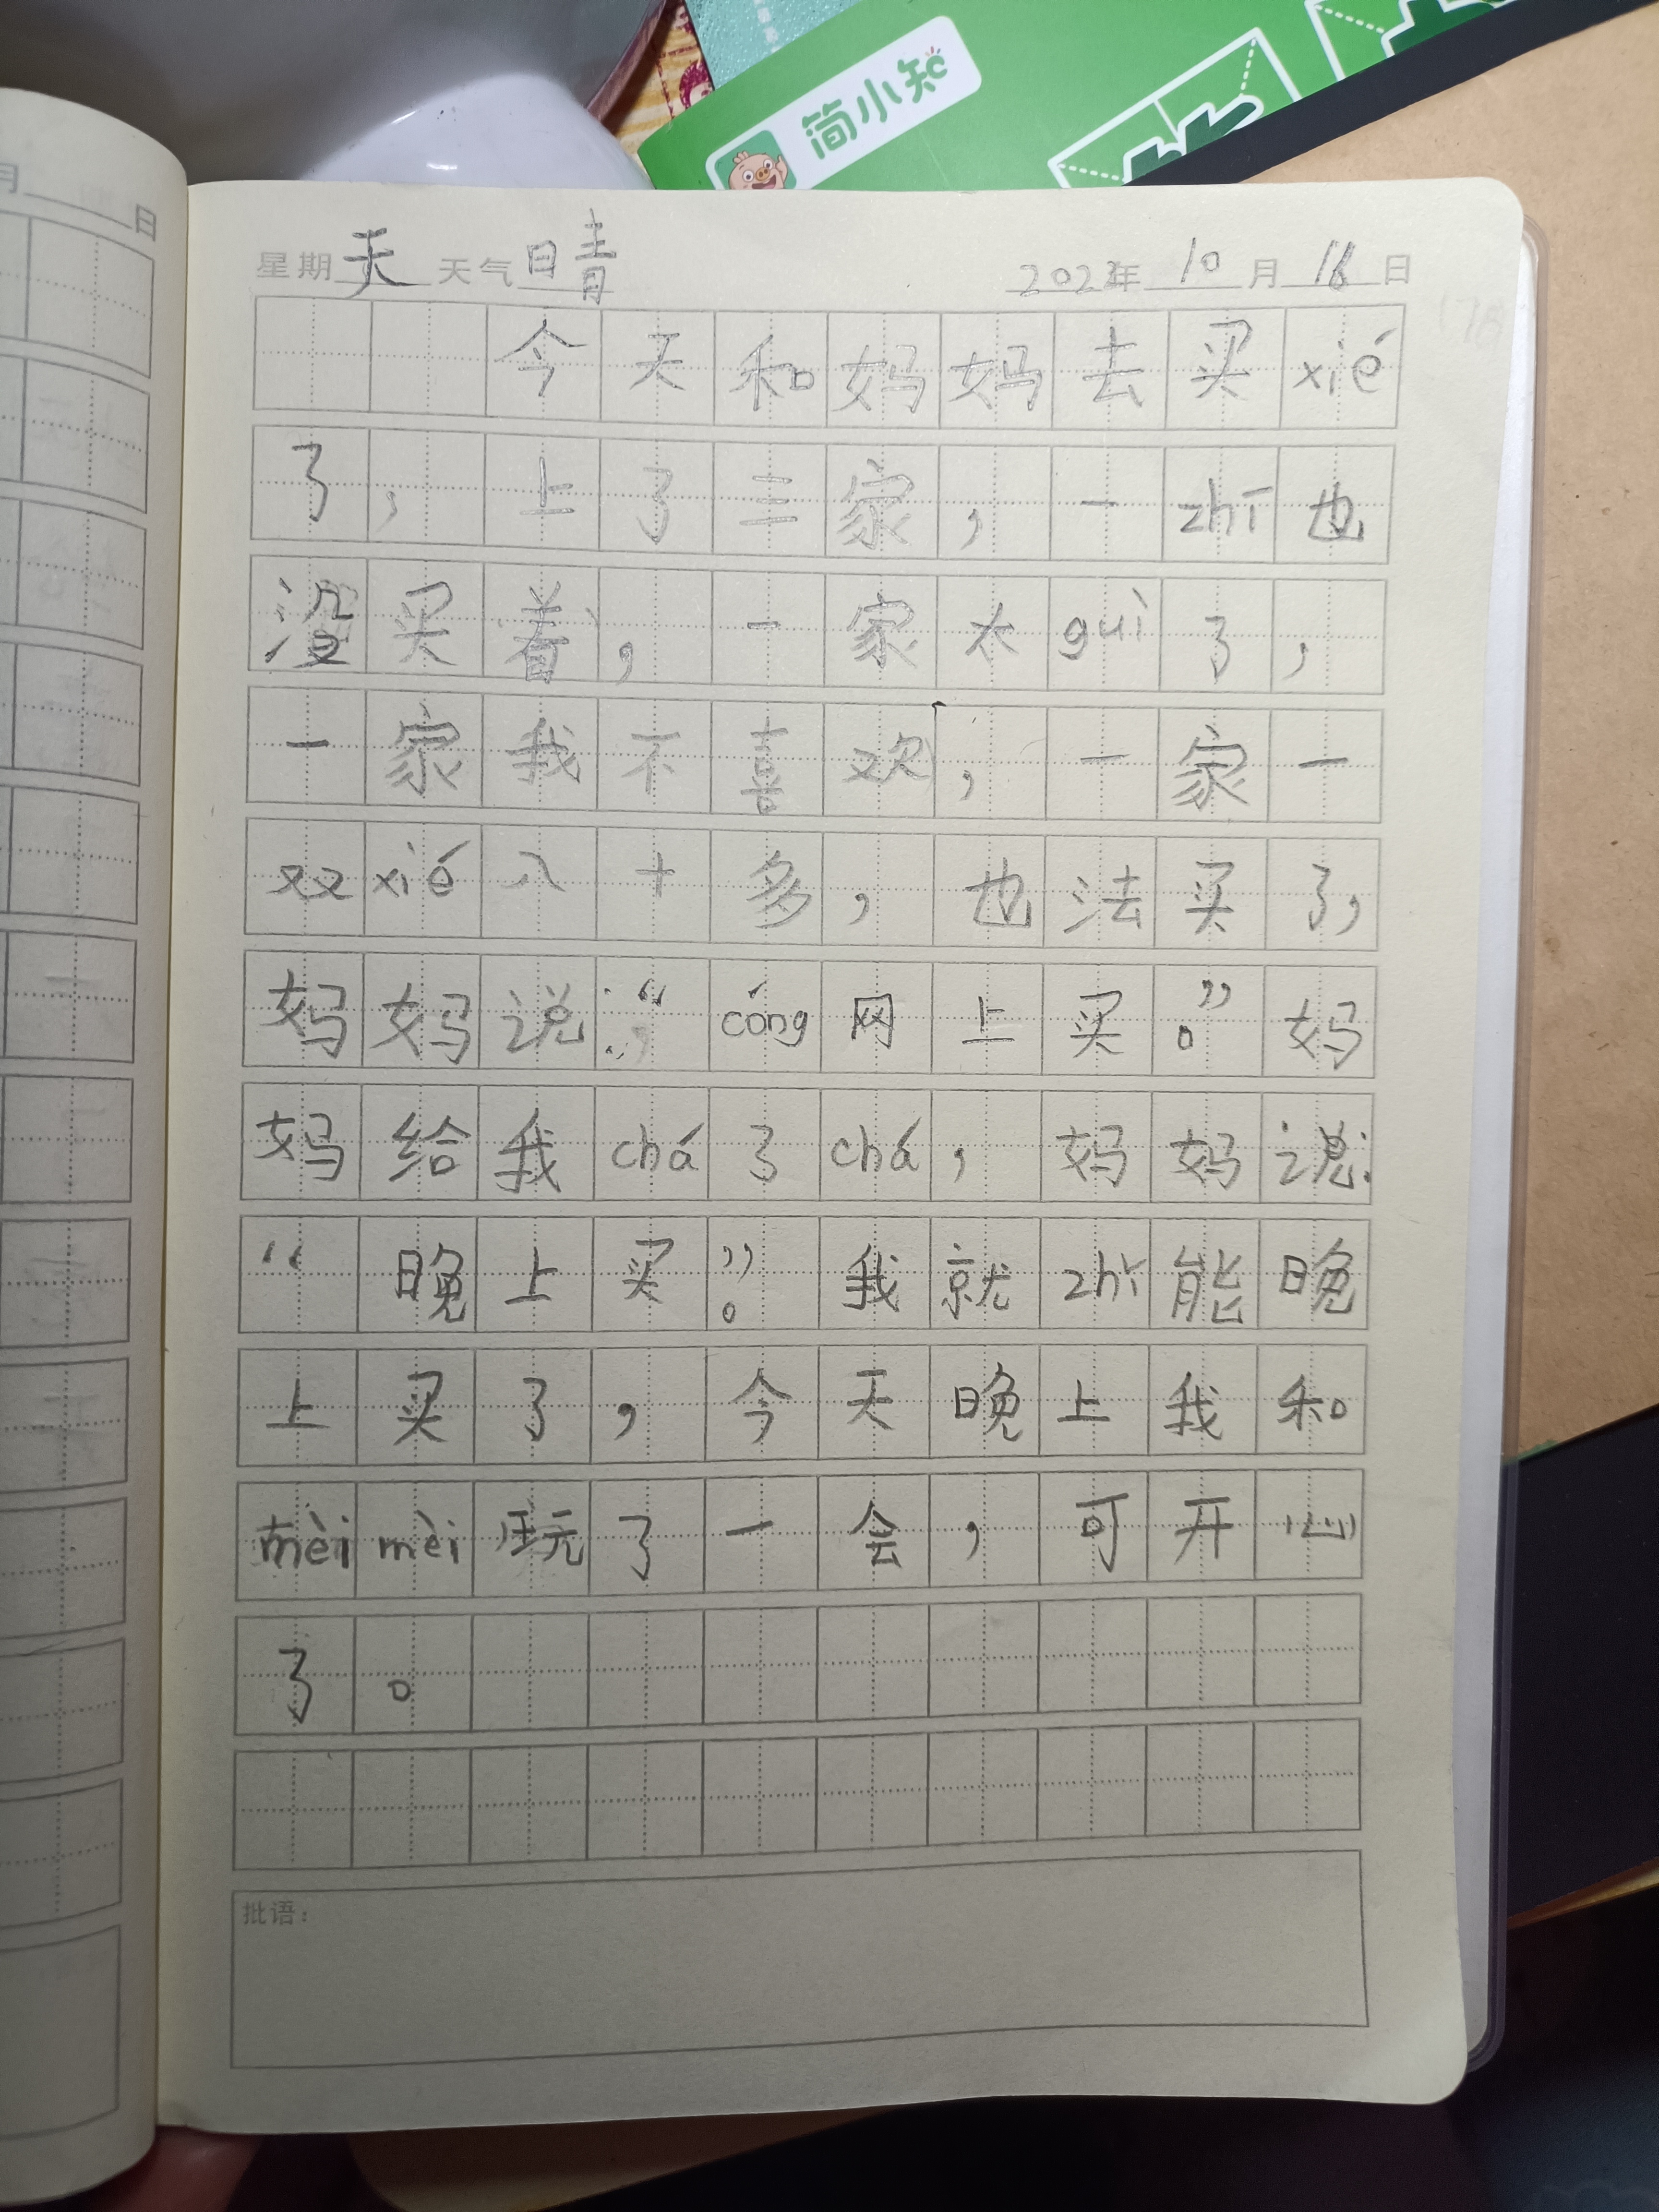 简小知
月 日
星期天 天气晴 2022年10月16日
今天和妈妈去买xié
了，上了三家，一zhī也
没买着，一家太guì了，
一家我不喜欢，一家一
双xié八十多，也法买了，
妈妈说：“cóng网上买。”妈
妈给我chá了chá，妈妈说：
“晚上买”。我就zhǐ能晚
上买了，今天晚上我和
mèimèi玩了一会，可开心
了。
批语：